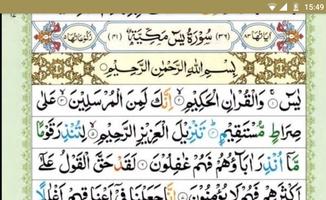 15:49
اٰيَاتُهَا ٨٣ (٣٦) سُوْرَةُ يٰسٓ مَكِّيَّةٌ (٤١) رُكُوْعَاتُهَا ٥
بِسْمِ اللّٰهِ الرَّحْمٰنِ الرَّحِيْمِ
يٰسٓ ۚ وَالْقُرْاٰنِ الْحَكِيْمِ ۙ اِنَّكَ لَمِنَ الْمُرْسَلِيْنَ ۙ عَلٰى
صِرَاطٍ مُّسْتَقِيْمٍ ؕ تَنْزِيْلَ الْعَزِيْزِ الرَّحِيْمِ ۙ لِتُنْذِرَ قَوْمًا
مَّاۤ اُنْذِرَ اٰبَآؤُهُمْ فَهُمْ غٰفِلُوْنَ لَقَدْ حَقَّ الْقَوْلُ عَلٰٓى
اَكْثَرِهِمْ فَهُمْ لَا يُؤْمِنُوْنَ اِنَّا جَعَلْنَا فِيْۤ اَعْنَاقِهِمْ اَغْلٰلًا